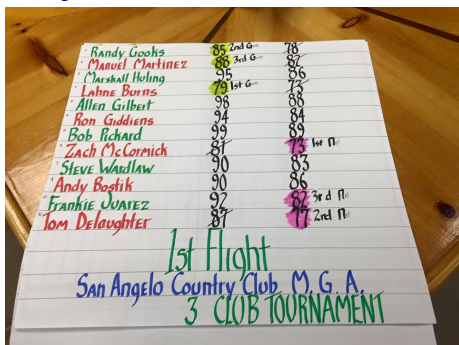 Randy Gooks 85 2nd G 78
Manuel Martinez 88 3rd G 82
Marshall Huling 95 86
Lahne Burns 79 1st G 73
Allen Gilbert 98 88
Ron Giddiens 94 84
Bob Pickard 99 89
Zach McCormick 81 73 1st N
Steve Wardlaw 90 83
Andy Bostik 90 86
Frankie Juarez 92 82 3rd N
Tom Delaughter 87 77 2nd N
1st Flight
San Angelo Country Club M. G. A.
3 CLUB TOURNAMENT